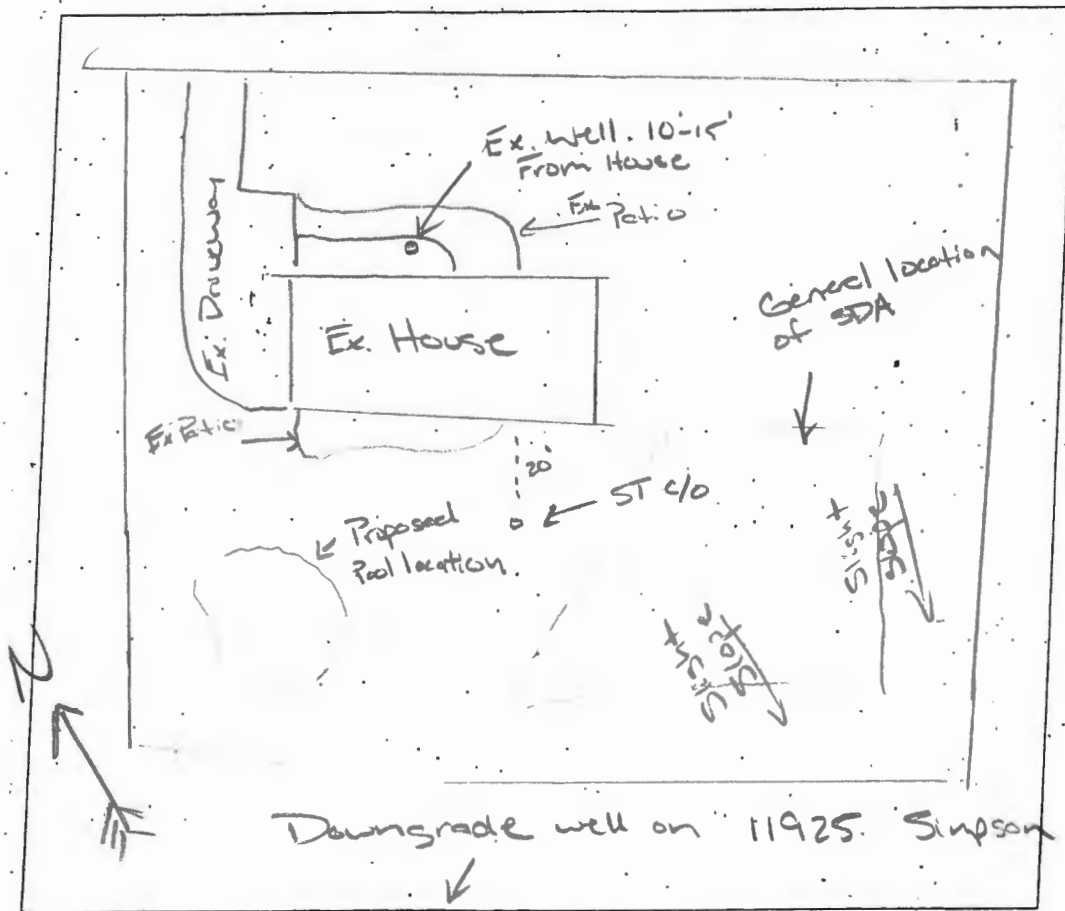 Ex. Well. 10'-15'
From House
Ex Patio
Ex. Driveway
General location
of SDA
Ex. House
Ex Patio
20'
ST c/o
Proposed
Pool location.
Slope
Slope
N
Downgrade well on 11925 Simpson